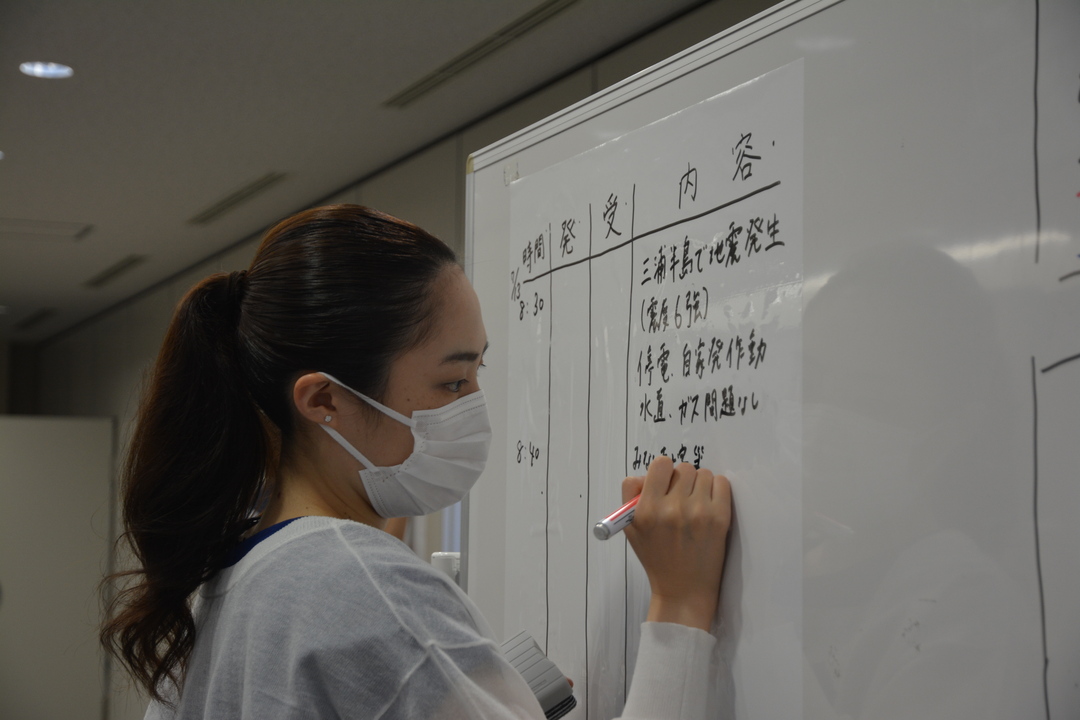 時間 発 受 内容
7/13
8:30 三浦半島で地震発生
(震度6強)
停電、自家発作動
水道、ガス問題なし
8:40